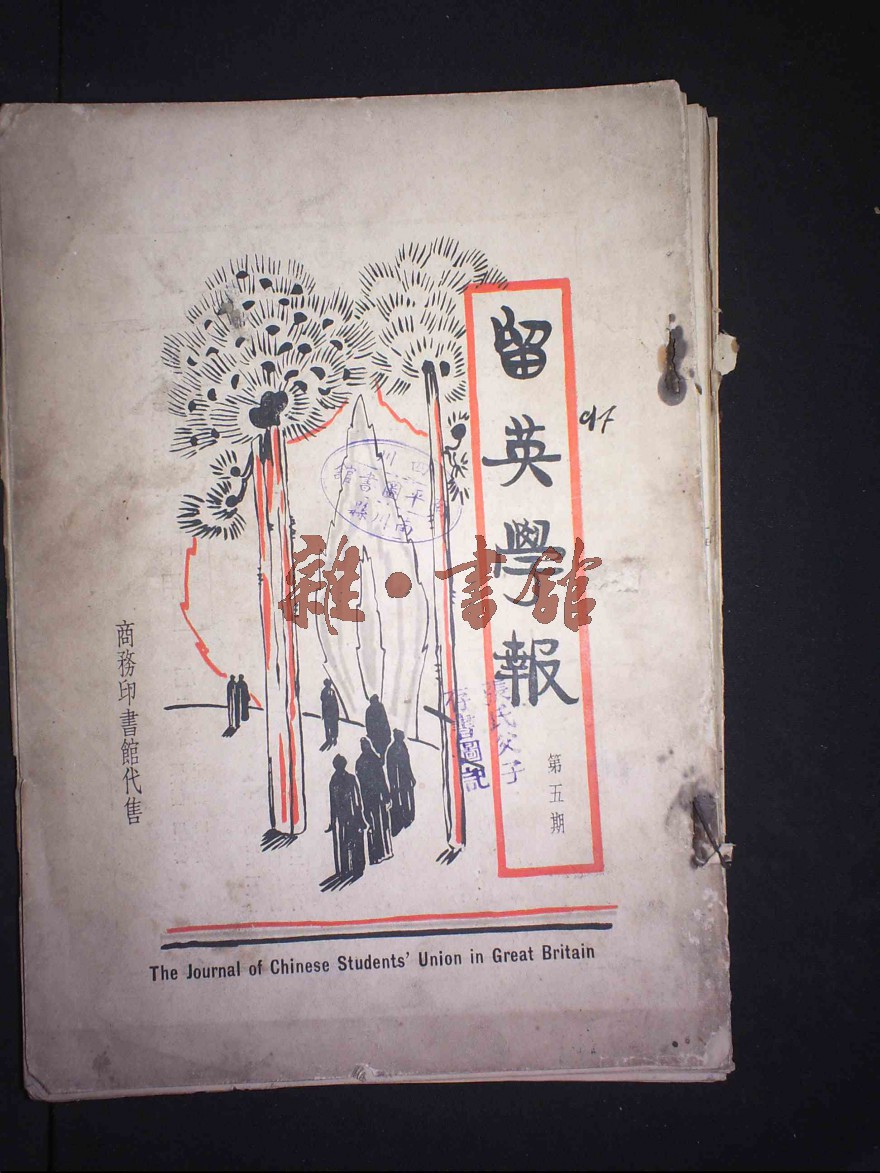 留英學報
第五期
商務印書館代售
張氏父子
存書圖記
雜·書館
The Journal of Chinese Students' Union in Great Britain